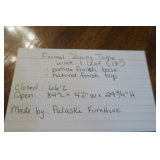 Formal Dining Table
with 1 Leaf (18")
- patina finish base
- natural finish top
Closed : 66"L
Open : 84"L x 42"W x 29 1/4"H
Made by: Pulaski Furniture